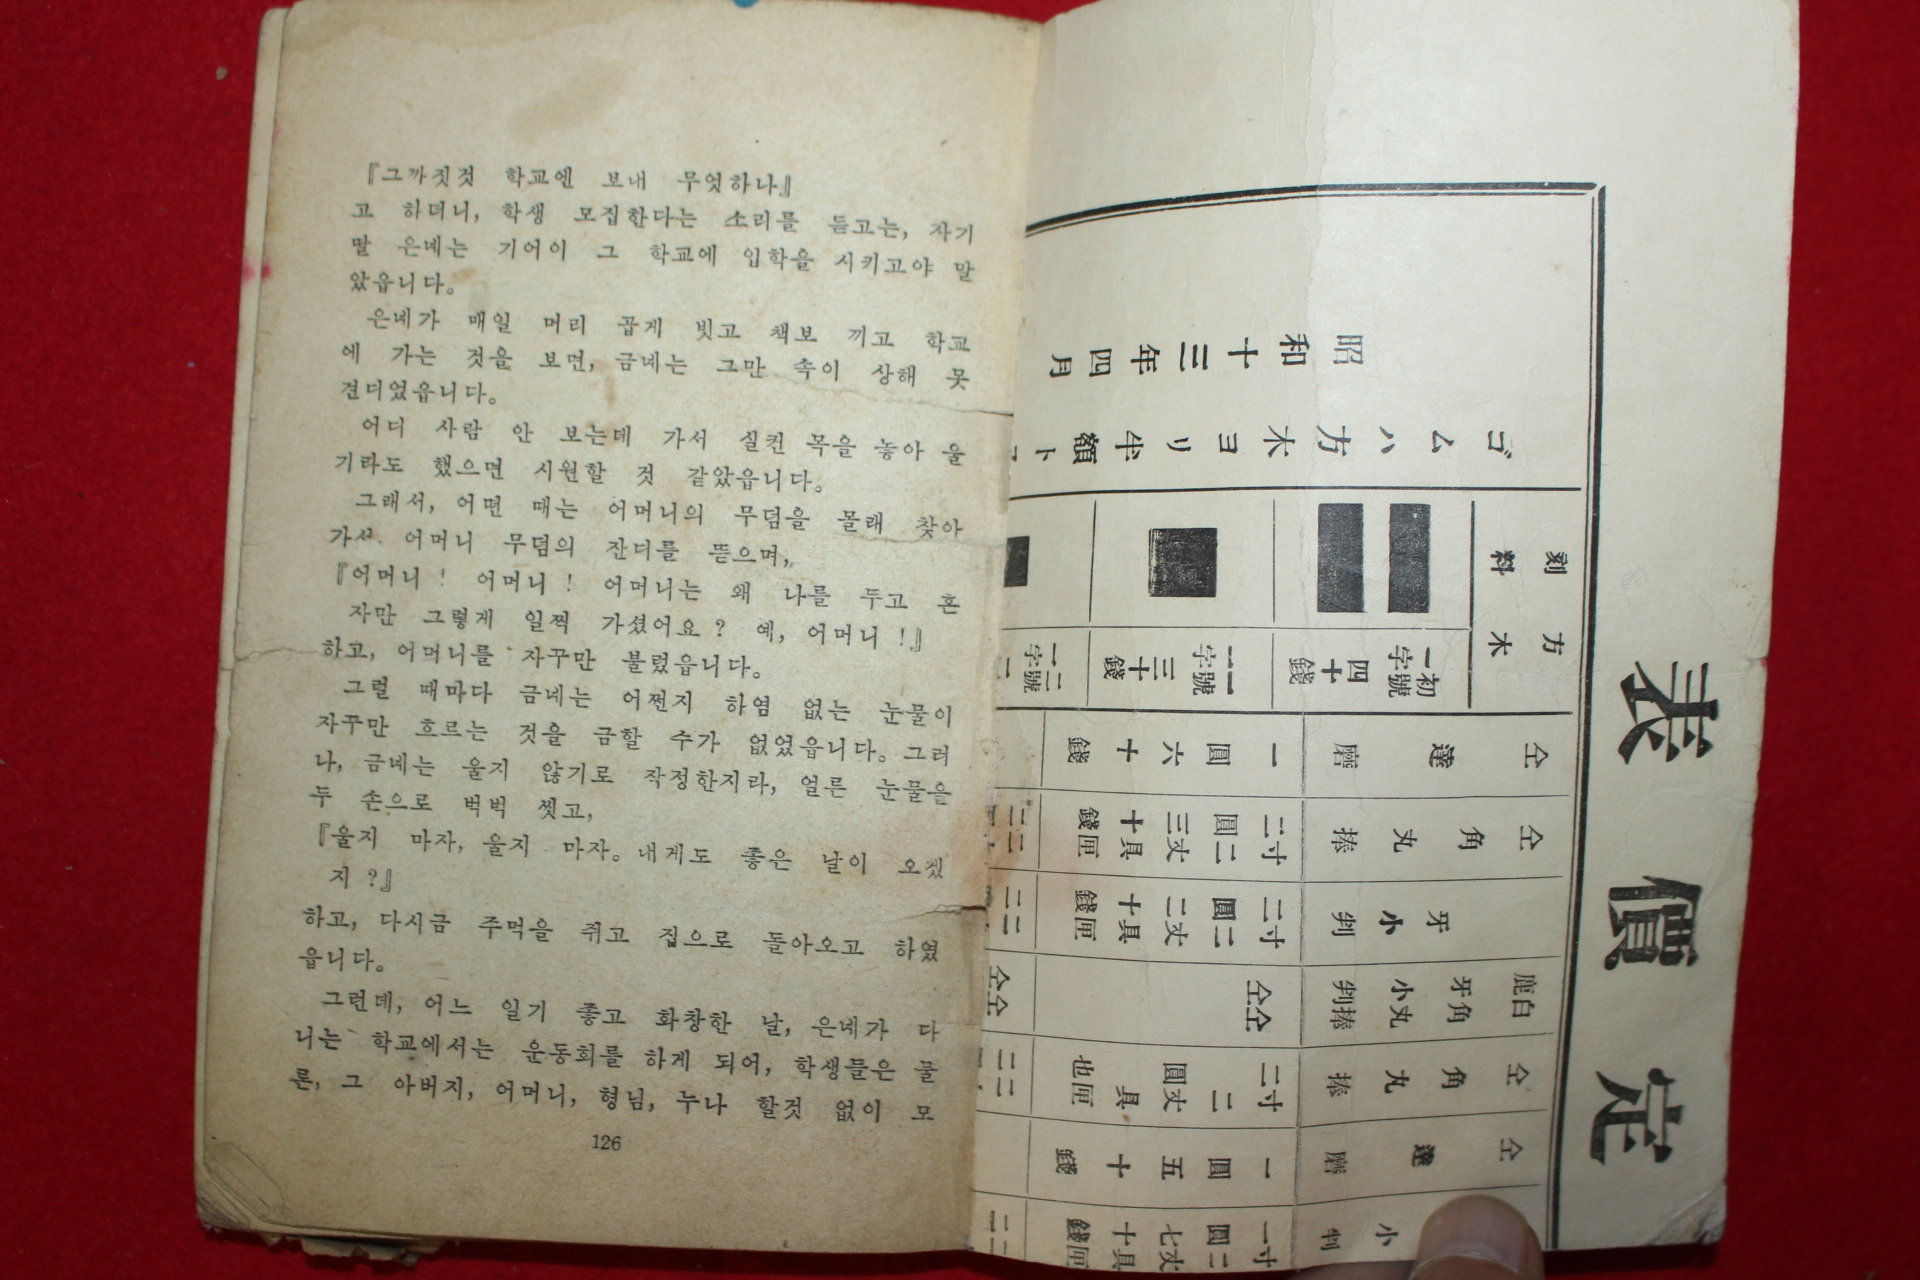 『그까짓것 학교엔 보내 무엇하나』
고 하더니, 학생 모집한다는 소리를 듣고는, 자기
딸 은네는 기어이 그 학교에 입학을 시키고야 말
았읍니다。
은네가 매일 머리 곱게 빗고 책보 끼고 학교
에 가는 것을 보면, 금네는 그만 속이 상해 못
견디었읍니다。
어디 사람 안 보는데 가서 실컨 목을 놓아 울
기라도 했으면 시원할 것 같았읍니다。
그래서, 어떤 때는 어머니의 무덤을 몰래 찾아
가서 어머니 무덤의 잔디를 뜯으며,
『어머니! 어머니! 어머니는 왜 나를 두고 혼
자만 그렇게 일찍 가셨어요? 예, 어머니!』
하고, 어머니를 자꾸만 불렀읍니다。
그럴 때마다 금네는 어쩐지 하염 없는 눈물이
자꾸만 흐르는 것을 금할 수가 없었읍니다。그러
나, 금네는 울지 않기로 작정한지라, 얼른 눈물을
두 손으로 벅벅 씻고,
『울지 마자, 울지 마자。내게도 좋은 날이 오겠
지?』
하고, 다시금 주먹을 쥐고 집으로 돌아오고 하였
읍니다。
그런데, 어느 일기 좋고 화창한 날, 은네가 다
니는 학교에서는 운동회를 하게 되어, 학생들은 물
론, 그 아버지, 어머니, 형님, 누나 할것 없이 모
126
定價表
刻料
方木
初號
一字
四十錢
一號
一字
三十錢
二號
一字
仝達磨
一圓六十錢
仝角丸棒
二圓三十錢
寸二丈具匣
牙小判
二圓二十錢
寸二丈具匣
鹿牙小判
白角丸棒
仝仝
仝角丸棒
二圓也
寸二丈具匣
仝達磨
一圓五十錢
小判
一圓七十錢
寸二丈具匣
ゴムハ方木ヨリ半額
昭和十三年四月